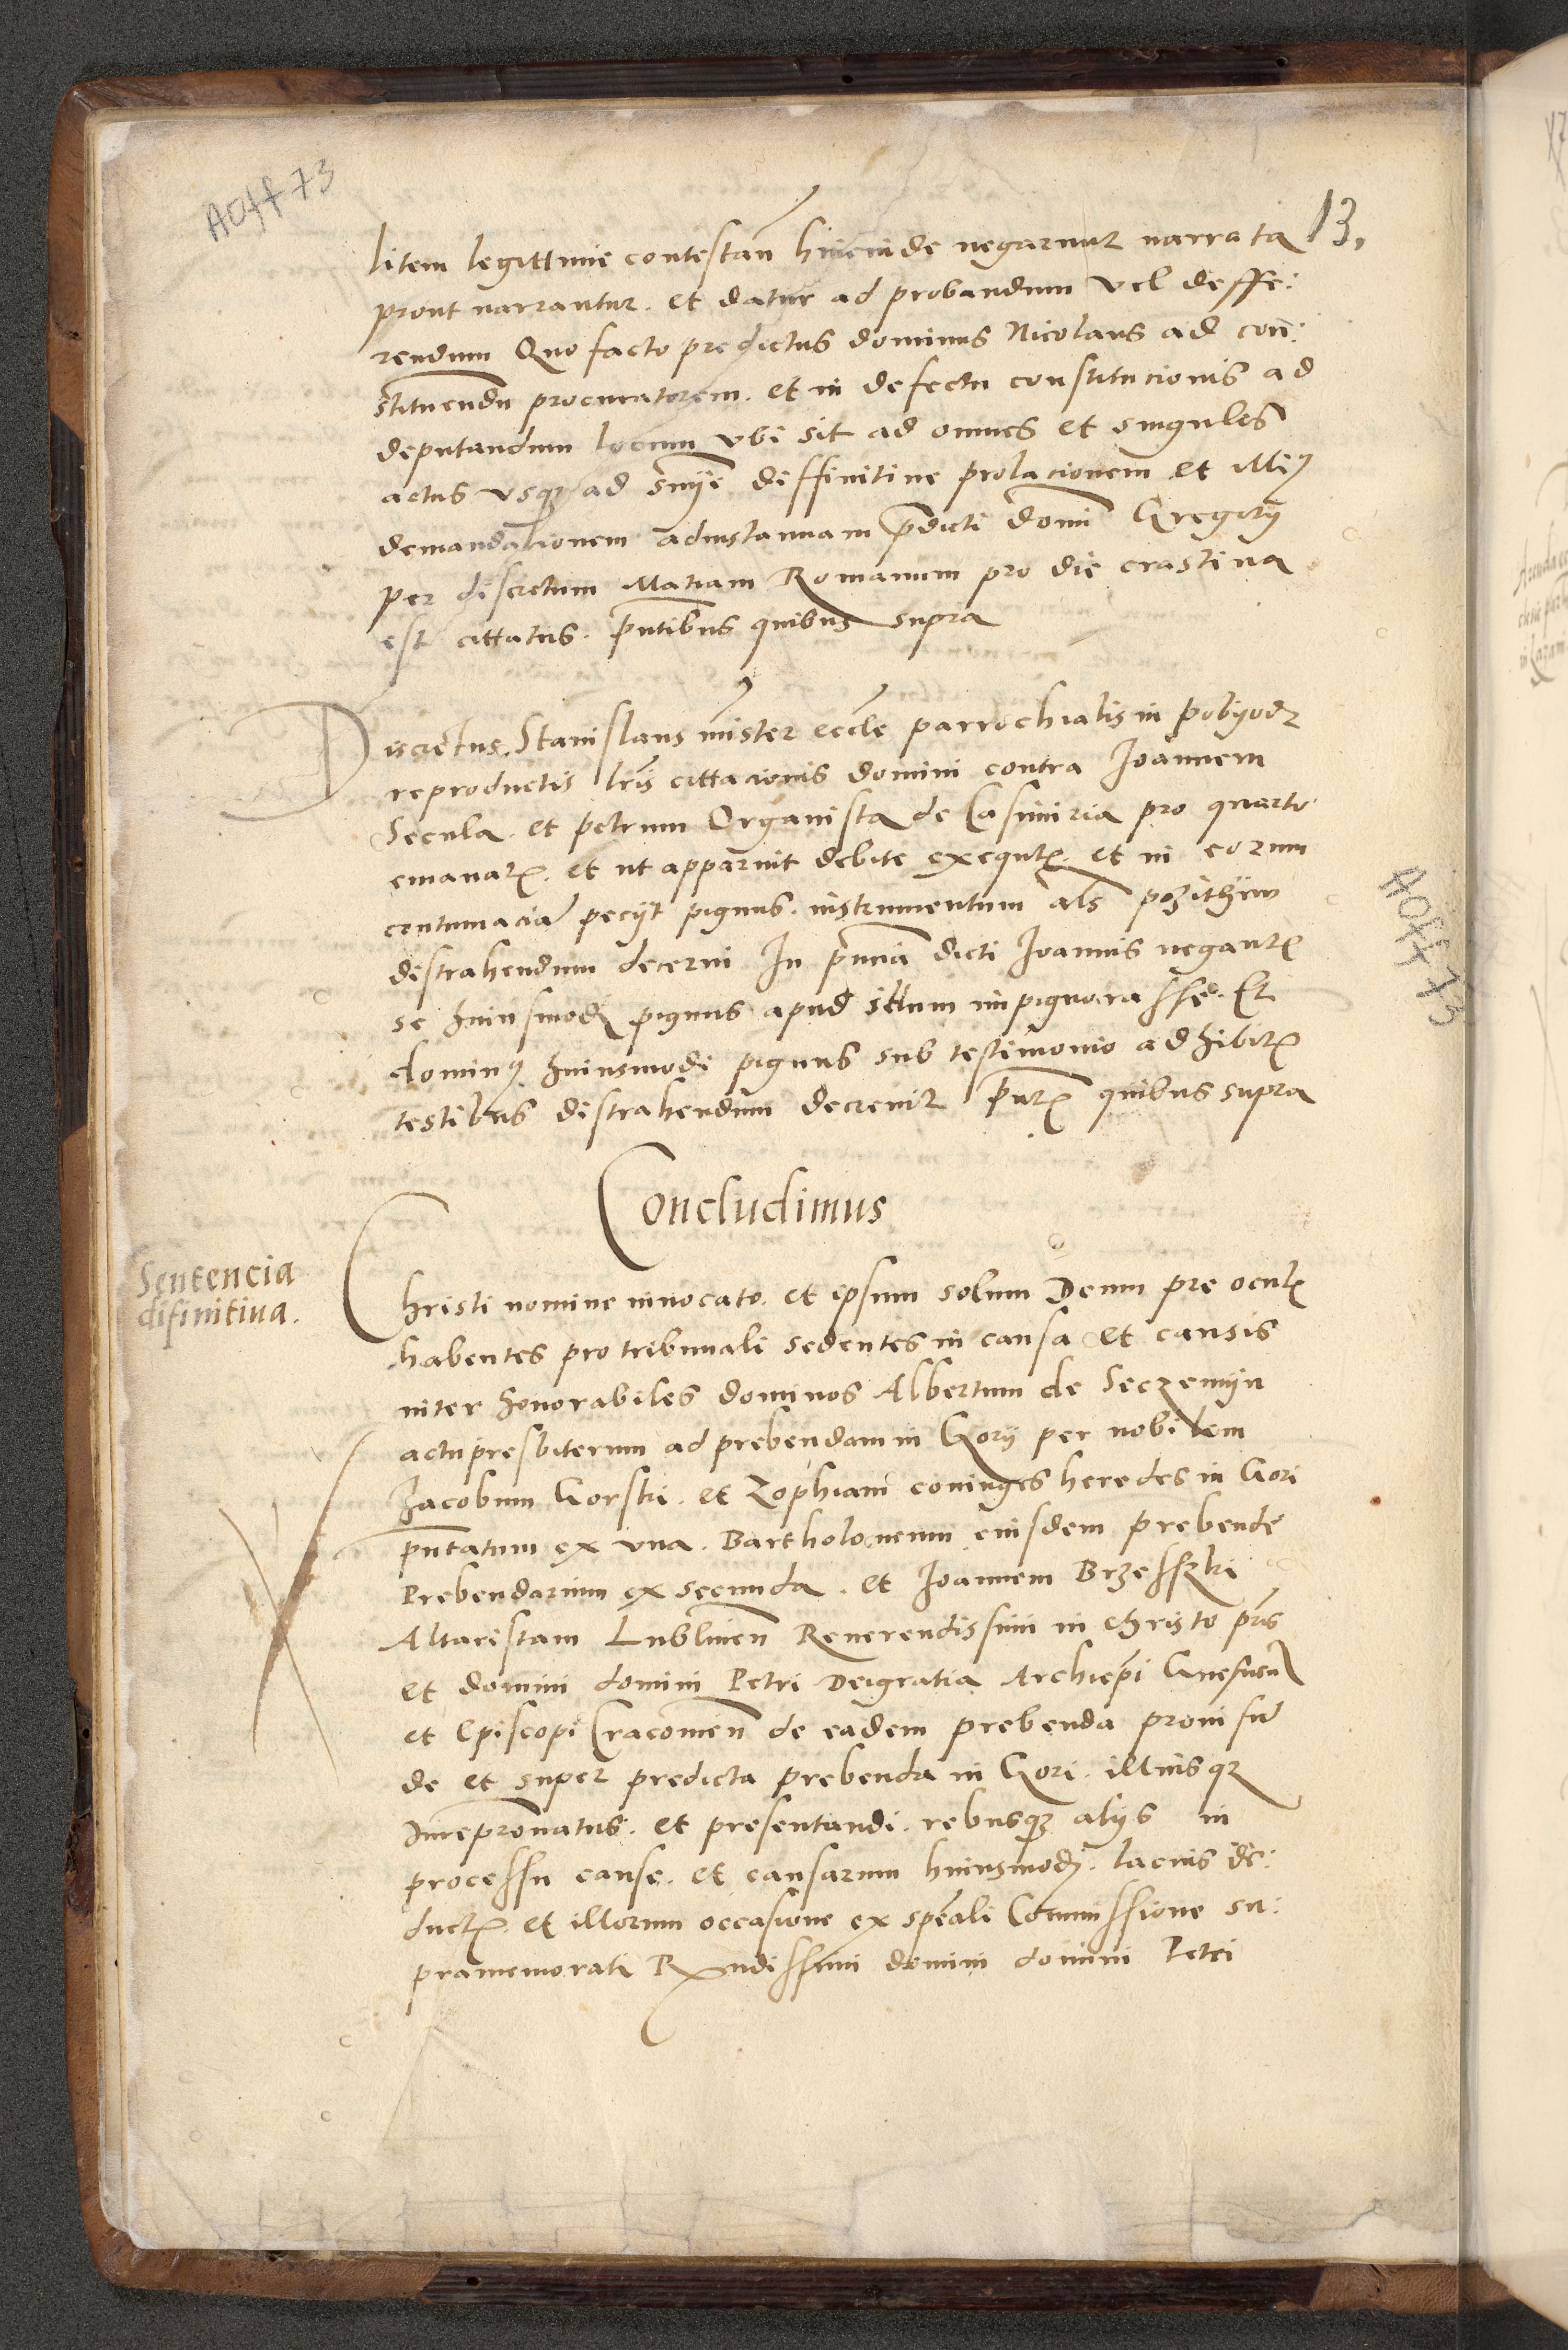 AOff 73
13.
litem legittime contestan̄ hincinde negarunt narrata
prout narrantur. et datur ad probandum vel deffe:
rendum Quo facto predictus dominus Nicolaus ad con:
stituendū procuratorem. et in defectu constitucionis ad
deputandum locum vbi sit ad omnes et singulos
actus vsq3 ad snīje diffinitiue prolacionem et
demandationem adinstanciam p̄dicti domī Gregorij
per discretum Matiam Romanum pro die crastina
est cittatus. p̄ntibus quibus supra
Discretus. Stanislaus mīster eccle parrochialis in pobyod2
reproductis lrīs cittacionis domini contra Joannem
Secula. et petrum Organista de Casimiria pro quarto
emanat. et ut apparuit debite exequt. et in eorum
contumaciā pecijt pignus. instrumentum als pozithyw
distrahendum decerni In p̄ncia dicti Joannis negant
se huiusmodi pignus apud illum impignorasse. Et
dominus huiusmodi pignus sub testimonio adhibit
testibus distrahendum decreuit p̄nt quibus supra
Concludimus
Sentencia
difinitiua.
Christi nomine inuocato. et ipsum solum Deum pre ocul
habentes pro tribunali sedentes in causa et causis
inter honorabiles dominos Albertum de Seczemijn
actu presbiterum ad prebendam in Gorij per nobilem
Jacobum Gorski. et Zophiam coniuges heredes in Gori
p̄ntatum ex vna. Bartholomeum eiusdem prebende
Prebendarium ex secunda. et Joannem Brzesszki
Altaristam Lublinen̄ Reuerendissimi in christo pris
et domini domini Petri Deigratia Archiepi Gnesnen
et Episcopi Cracouien̄ de eadem prebenda prouisū
de et super predicta prebenda in Gori. illiusq3
Jurepronatus. et presentandi. rebusq3 alijs in
processu cause. et causarum huiusmodi. lacius de:
duct. et illorum occasione ex speāli Commissione su:
pramemorati Rndissimi domini domini Petri
AOff 73